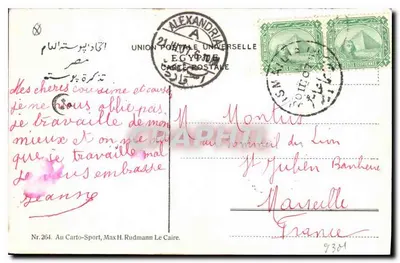 اتحاد بوستة العام
مصر
تذكرة بوسته
UNION POSTALE UNIVERSELLE
EGYPTE
CARTE POSTALE
ALEXANDRIA
A
Mes chères cousine et
je ne vous oublie pas
je travaille de mon
mieux et on me
que je travaille mal
Je vous embrasse
Jeanne
Montius
au Sommet du Lion
St Julien Banlieue
Marseille
France
Nr. 264. Au Carto-Sport, Max H. Rudmann Le Caire.